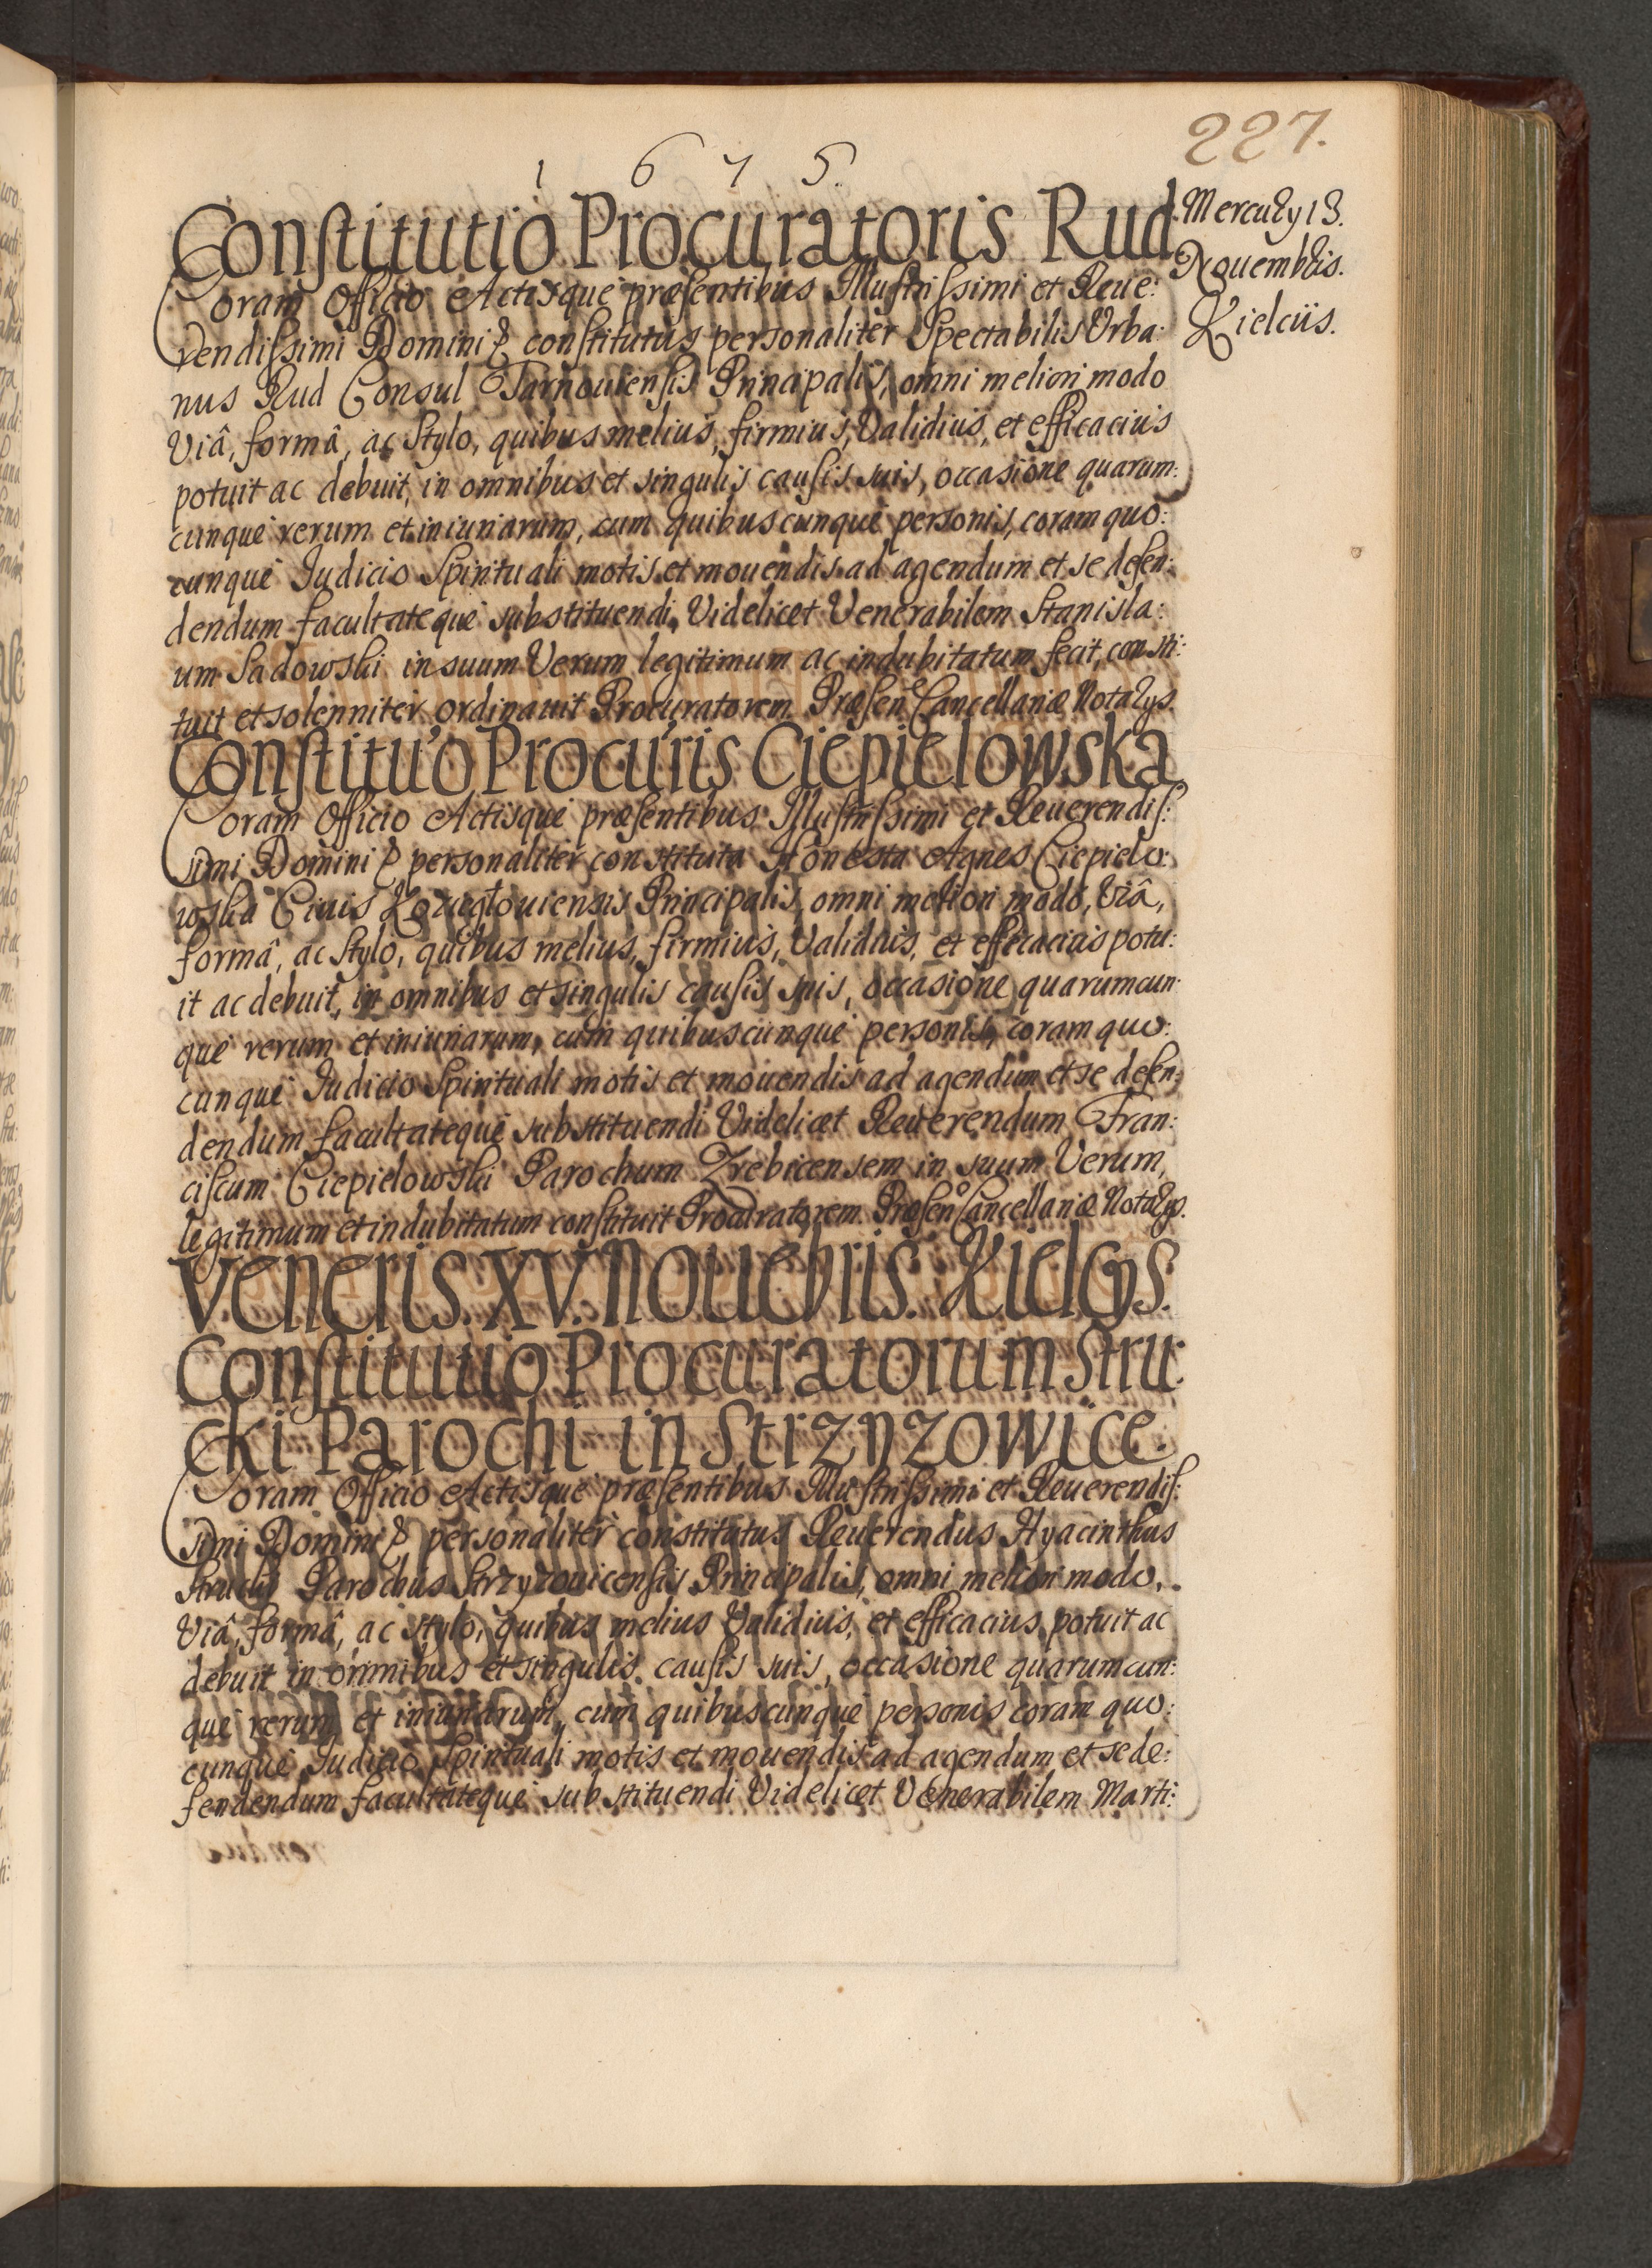 227.
1 6 7 5.
Constitutio Procuratoris Rud.
Mercurÿ 13.
Nouembris.
Kielciis.
Coram Officio Actisque præsentibus Illustrissimi et Reue:
rendissimi Domini & constitutus personaliter Spectabilis Urba:
nus Rud Consul Tarnouiensis Principalis, omni meliori modo
Viâ, formâ, ac Stylo, quibus melius, firmius, Validius, et efficacius
potuit ac debuit, in omnibus et singulis causis suis, occasione quarum:
cunque rerum et iniuriarum, cum quibuscunque personis, coram quo:
cunque Iudicio Spirituali motis et mouendis ad agendum et se defen:
dendum facultateque substituendi, Videlicet Venerabilem Stanisla:
um Sadowski in suum Verum legitimum ac indubitatum fecit, consti:
tuit et solenniter ordinauit Procuratorem Præsen Cancellariæ Notarÿs.
Constitu'o Procu'ris Ciepielowska
Coram Officio Actisque præsentibus Illustrissimi et Reuerendis:
simi Domini & personaliter constituta Honesta Agnes Ciepielo:
wska Ciuis Principalis, omni meliori modo, Viâ,
formâ, ac Stylo, quibus melius, firmius, Validius, et efficacius potu:
it ac debuit, in omnibus et singulis causis suis, occasione quarumcun:
que rerum et iniuriarum, cum quibuscunque personis, coram quo:
cunque Iudicio Spirituali motis et mouendis ad agendum et se defen:
dendum facultateque substituendi Videlicet Reuerendum Fran:
ciscum Ciepielowski Parochum Zrebicensem in suum Verum,
legitimum et indubitatum constituit Procuratorem Præsen Cancellariæ Notarÿs.
Veneris. XV. Nouebris. Kielcÿs.
Constitutio Procuratorum Stru:
cki Parochi in Strzyzowice.
Coram Officio Actisque præsentibus Illustrissimi et Reuerendis:
simi Domini & personaliter constitutus Reuerendus Hyacinthus
Strucki Parochus Strzyzouicensis Principalis, omni meliori modo,
Viâ, formâ, ac stylo, quibus melius Validius, et efficacius potuit ac
debuit in omnibus et singulis causis suis, occasione quarumcun:
que rerum et iniuriarum, cum quibuscunque personis coram quo:
cunque Iudicio Spirituali motis et mouendis ad agendum et se de:
fendendum facultateque substituendi Videlicet Venerabilem Marti: